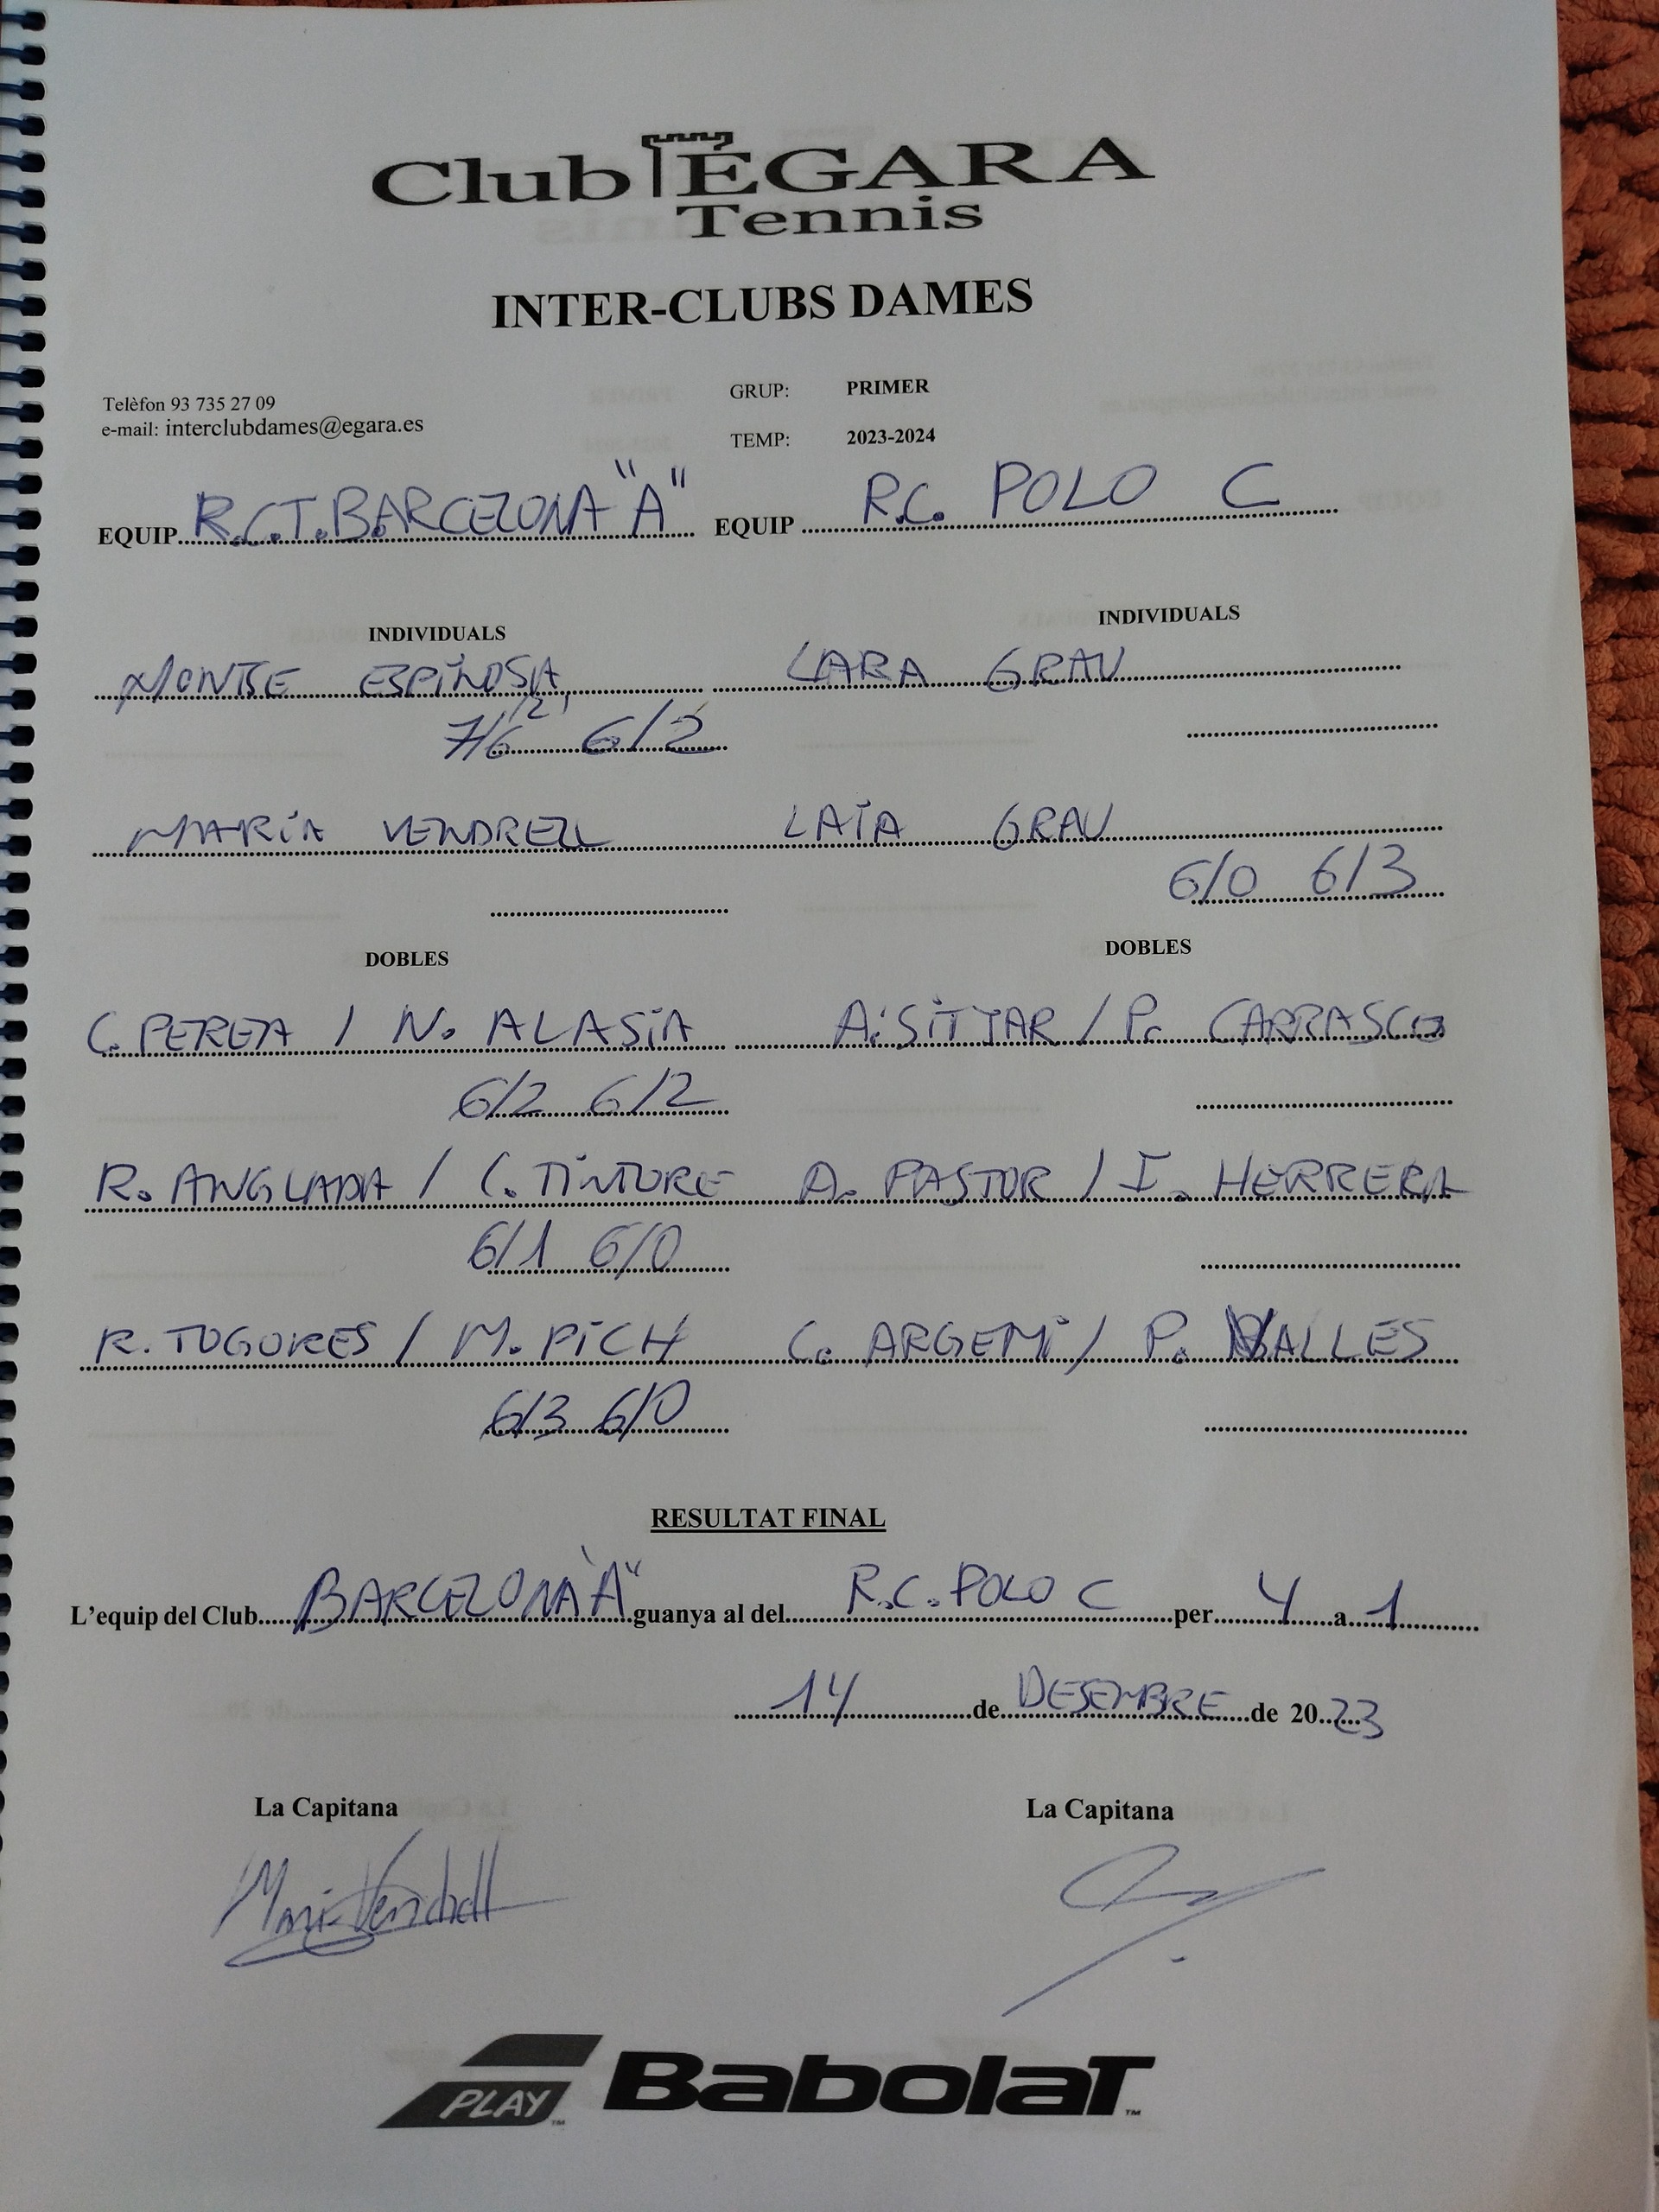 Club EGARA
Tennis
INTER-CLUBS DAMES
Telèfon 93 735 27 09
e-mail: interclubdames@egara.es
GRUP: PRIMER
TEMP: 2023-2024
EQUIP R.C.T. BARCELONA "A" EQUIP R.C. POLO C
INDIVIDUALS INDIVIDUALS
MONTSE ESPINOSA LARA GRAU
7/6 (2) 6/2
MARÍA VENDRELL LAIA GRAU
6/0 6/3
DOBLES DOBLES
C. PEREA / N. ALASIA A. SITJAR / P. CARRASCO
6/2 6/2
R. ANGLADA / C. TINTORE A. PASTOR / I. HERRERA
6/1 6/0
R. TOGORES / M. PICH C. ARGEMI / P. VALLES
6/3 6/0
RESULTAT FINAL
L'equip del Club BARCELONA "A" guanya al del R.C. POLO C per 4 a 1
14 de DESEMBRE de 2023
La Capitana La Capitana
Maria Vendrell
PLAY™ BabolaT™